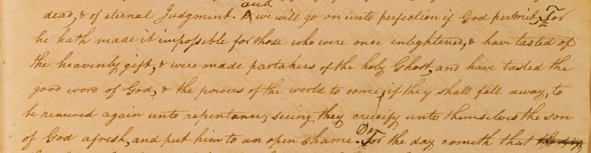 dead, & of eternal Judgment. and we will go on unto perfection if God permit. For
he hath made it impossible for those who were once enlightened, & have tasted of
the heavenly gift, & were made partakers of the holy Ghost, and have tasted the
good word of God, & the powers of the world to come, if they shall fall away, to
be renewed again unto repentance; seeing they crucify unto themselves the son
of God afresh, and put him to an open shame. For the day cometh that